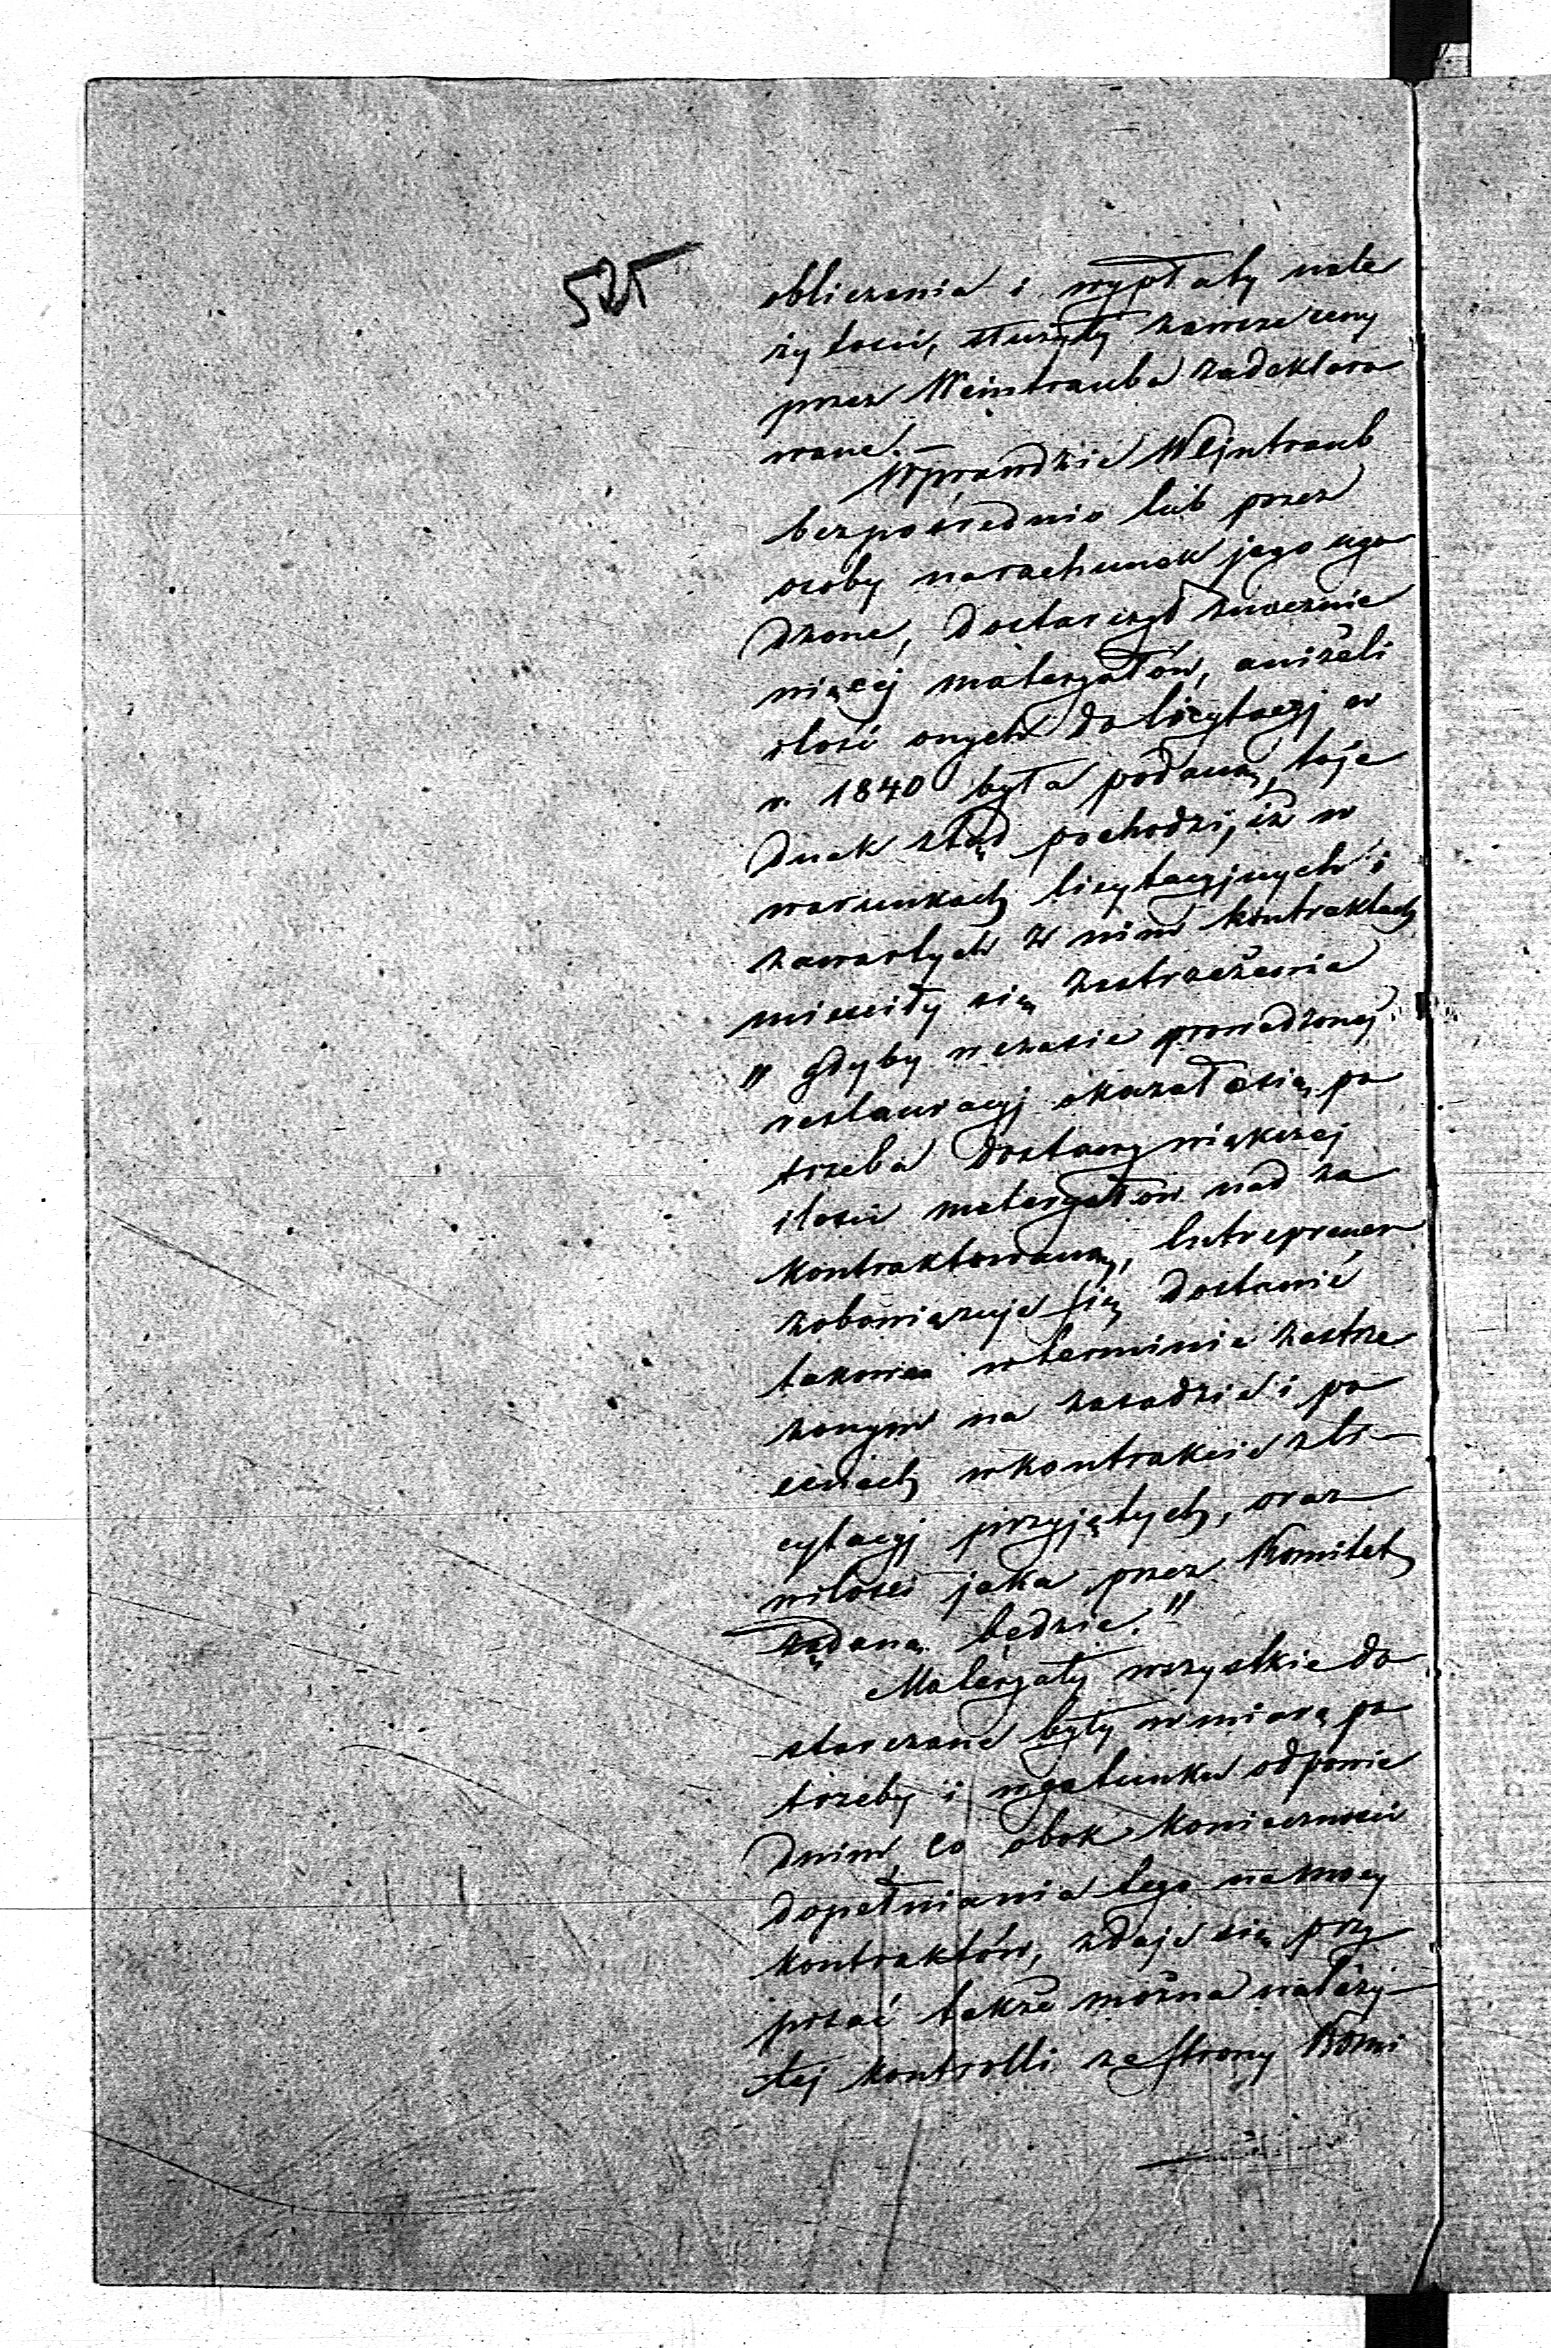 525
obliczenia i wypłaty nale
żytości, służyły zawsze ceny
przez Weintrauba zadeklaro
wane.—
Wprawdzie Wejntraub
bezpośrednio lub przez
osoby narachunek jego ugo
dzone, dostarczył znacznie
więcej materyałów, aniżeli
ilość onych do licytacyj w
r. 1840 była podaną, toje
dnak ztąd pochodzi, iż w
warunkach licytacyjnych i
zawartych z nim kontraktach
mieściły się zastrzeżenia
"gdyby wczasie prowadzonej
restauracyj okazała się po
trzeba dostawy większej
ilości materyałów nad za
kontraktowaną, Entreprener
zobowiązuje się dostawić
takowe w terminie zastrze
żonym na zasadzie i po
cenach wkontrakcie zli-
cytacyj przyjętych, oraz
wilości jaka przez Komitet
żądaną będzie."
Materyały wszystkie do
starczane były w miarę po
trzeby i wgatunku odpowie
dnim, co obok konieczności
dopełniania tego na mocy
kontraktów, zdaje się przy
pisać także można należy-
tej kontrolli ze strony Komi